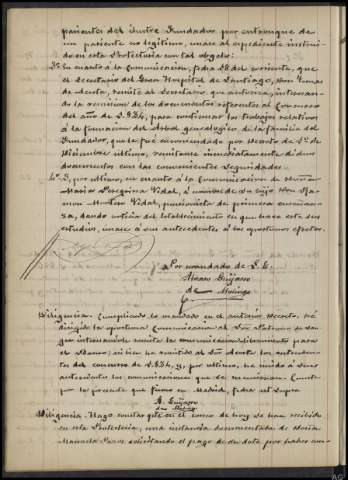 parientes del ilustre Fundador por entronque de
un pariente no legítimo, unase al expediente instrui-
do en esta Protectoría con tal objeto:
3º En cuanto á la comunicación, fecha 28 del corriente, que
el Secretario del Gran Hospital de Santiago, Don Tomas
de Acosta, remite al Secretario que autoriza, interesan-
do la remisión de los documentos referentes al Concurso
del año de 1884, para continuar los trabajos relativos
á la formación del Arbol genealógico de la familia del
Fundador, que le fué encomendado por decreto de 1º de
Diciembre último, remítanse inmediatamente dichos
documentos con las convenientes seguridades.
4º Y, por último, en cuanto á la comunicación de
Maria Peregrina Vidal, á nombre de su hijo Don Ra-
mon Montero Vidal, pensionista de primera enseñan-
za, dando noticia del establecimiento en que hace este sus
estudios, unase á sus antecedentes á los oportunos efectos.
Por mandado de S. E.
Alvaro Guijarro
de Molina
Diligencia. Cumpliendo lo mandado en el anterior decreto, se
dirigió la oportuna comunicación al Sor
interinamente
el Llavero; se han remitido al Sor Acosta los anteceden-
tes del concurso de 1884, y, por último, se unido á sus
antecedentes las comunicaciones que se mencionan. Conste
por la presente que firmo en Madrid, fecha ut supra
A. Guijarro
de Molina
Diligencia. Hago constar que en el correo de hoy se han recibido
en esta Protectoría; una instancia documentada de María
Manuela solicitando el pago de su dote por haber con-